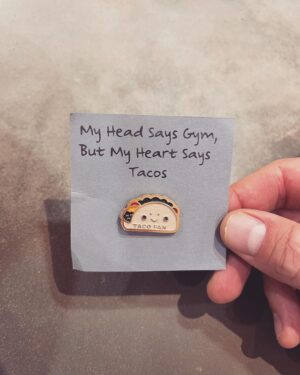 My Head Says Gym,
But My Heart Says
Tacos
TACO FAN